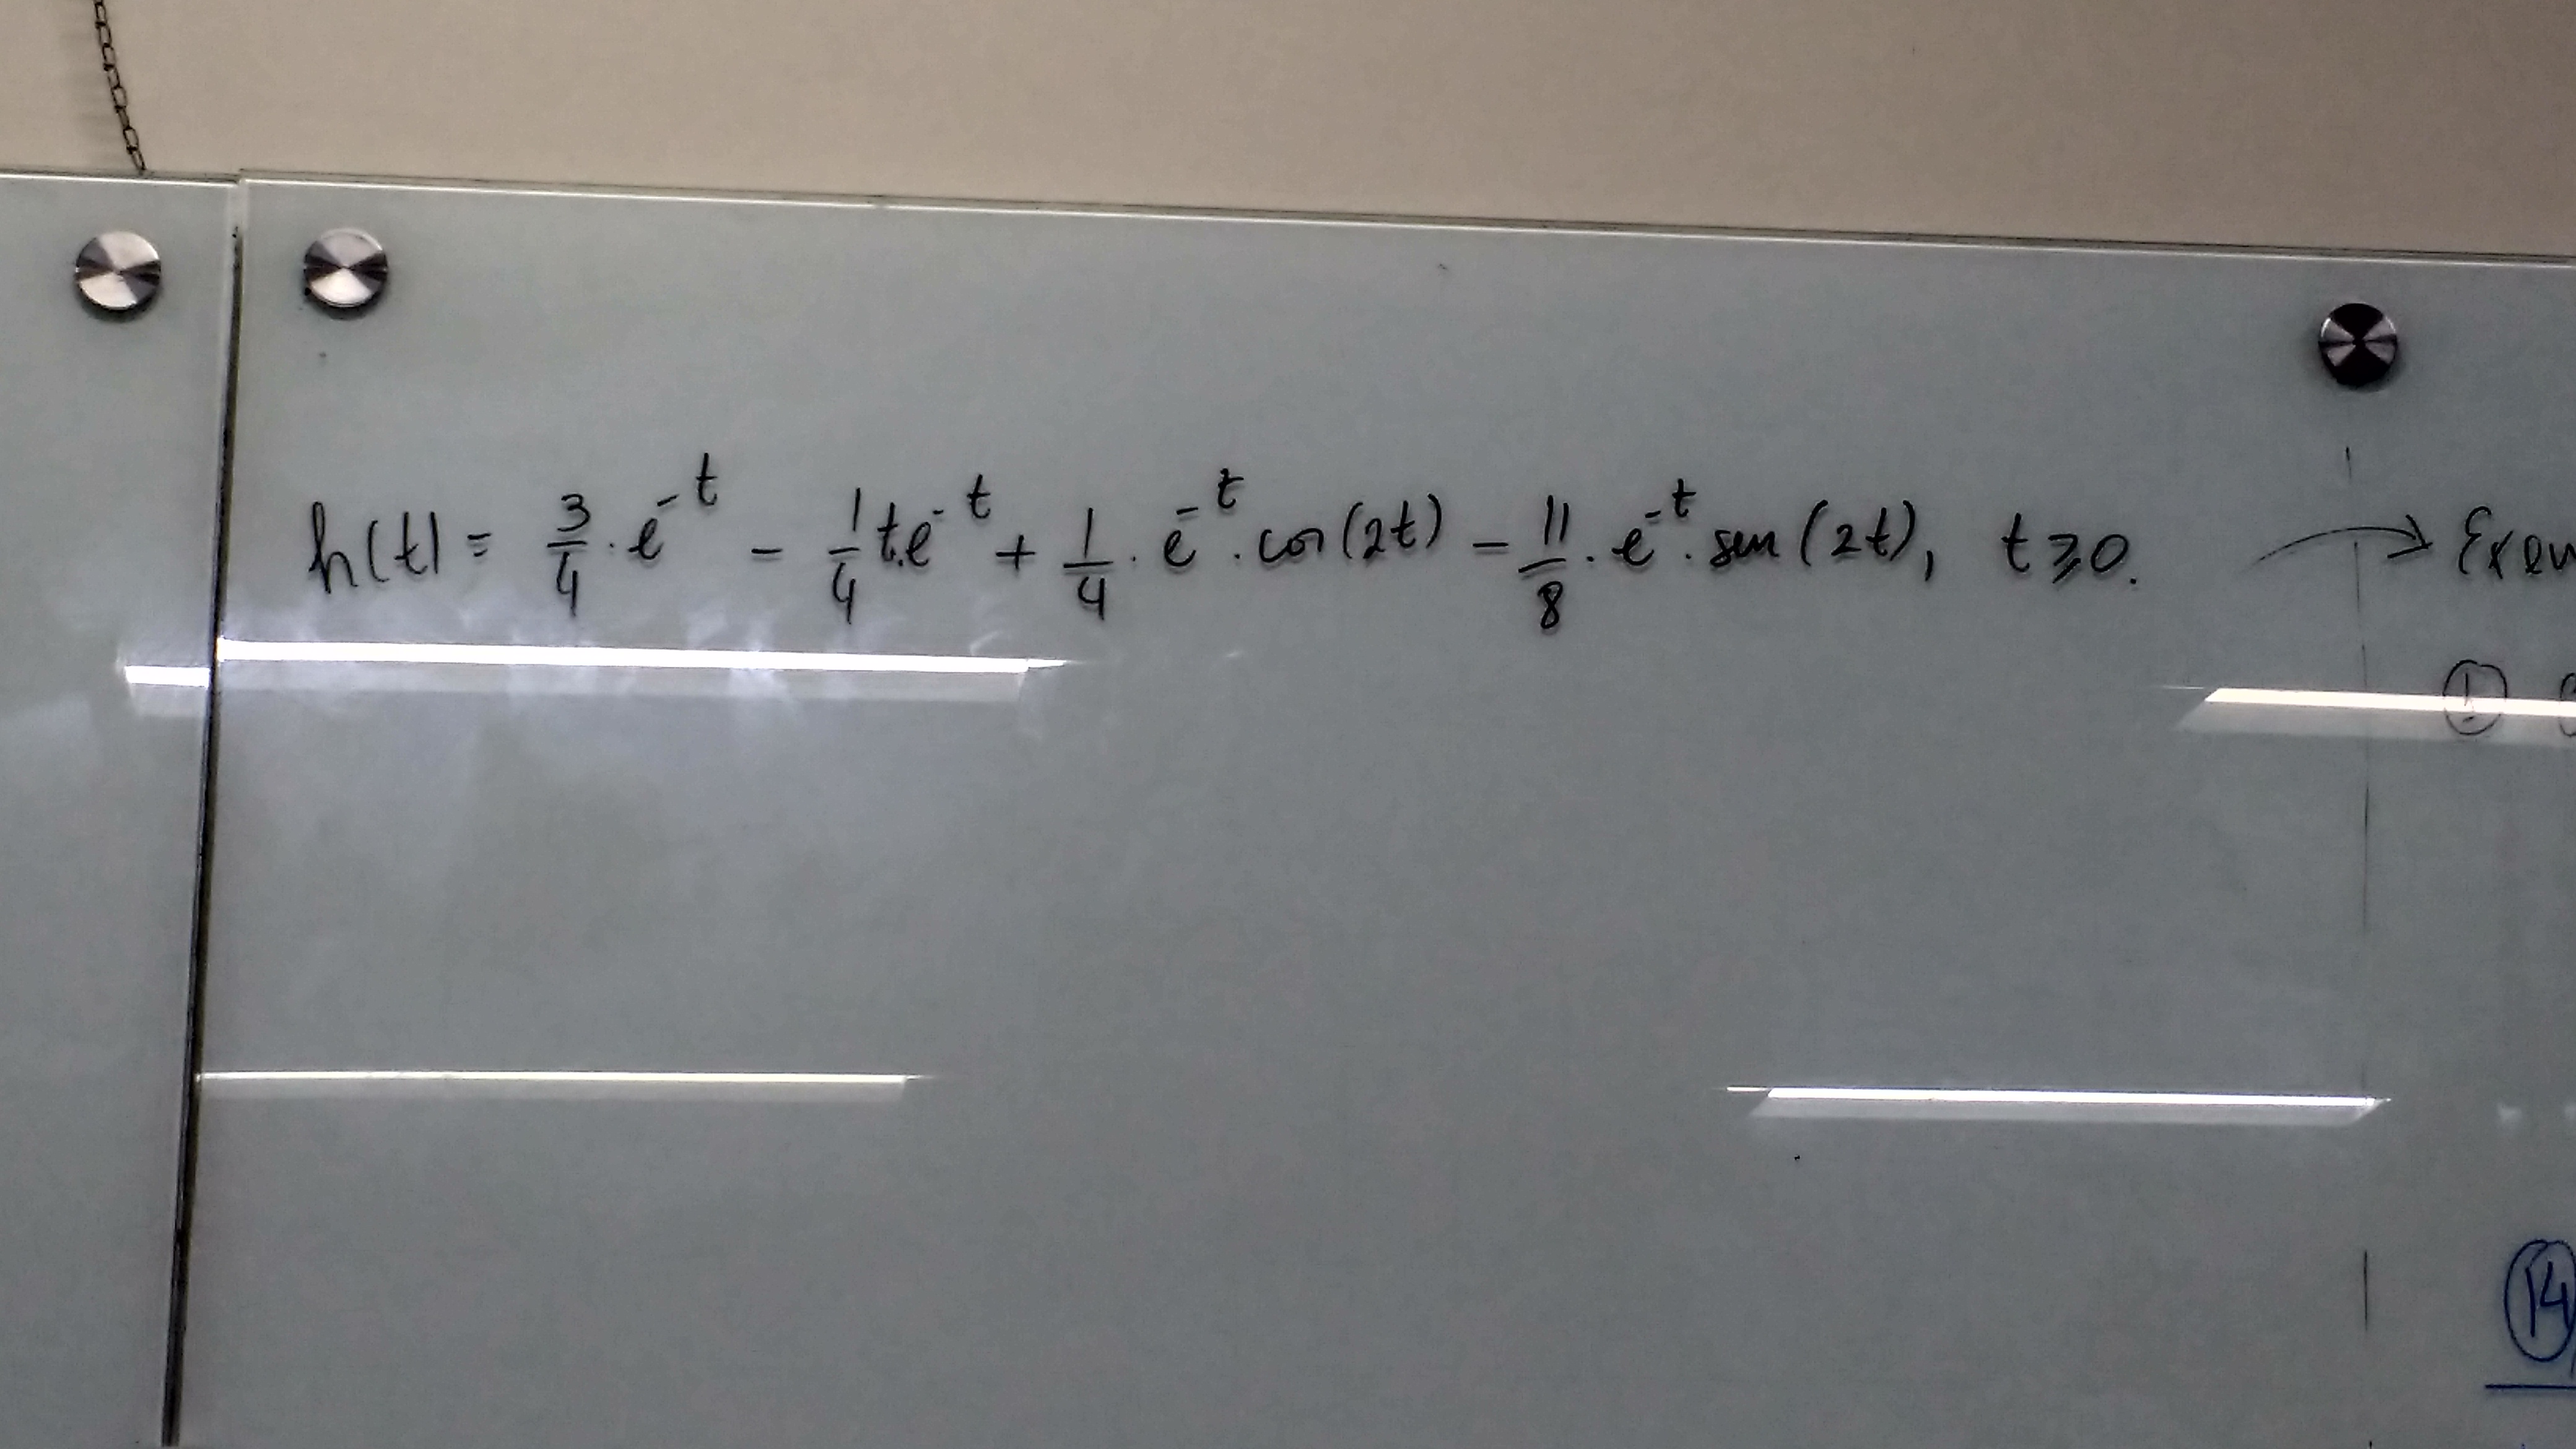 h(t) = 3/4 · e^-t - 1/4 t.e^-t + 1/4 · e^-t · cos(2t) - 11/8 · e^-t · sen(2t), t ≥ 0.
①
⑭